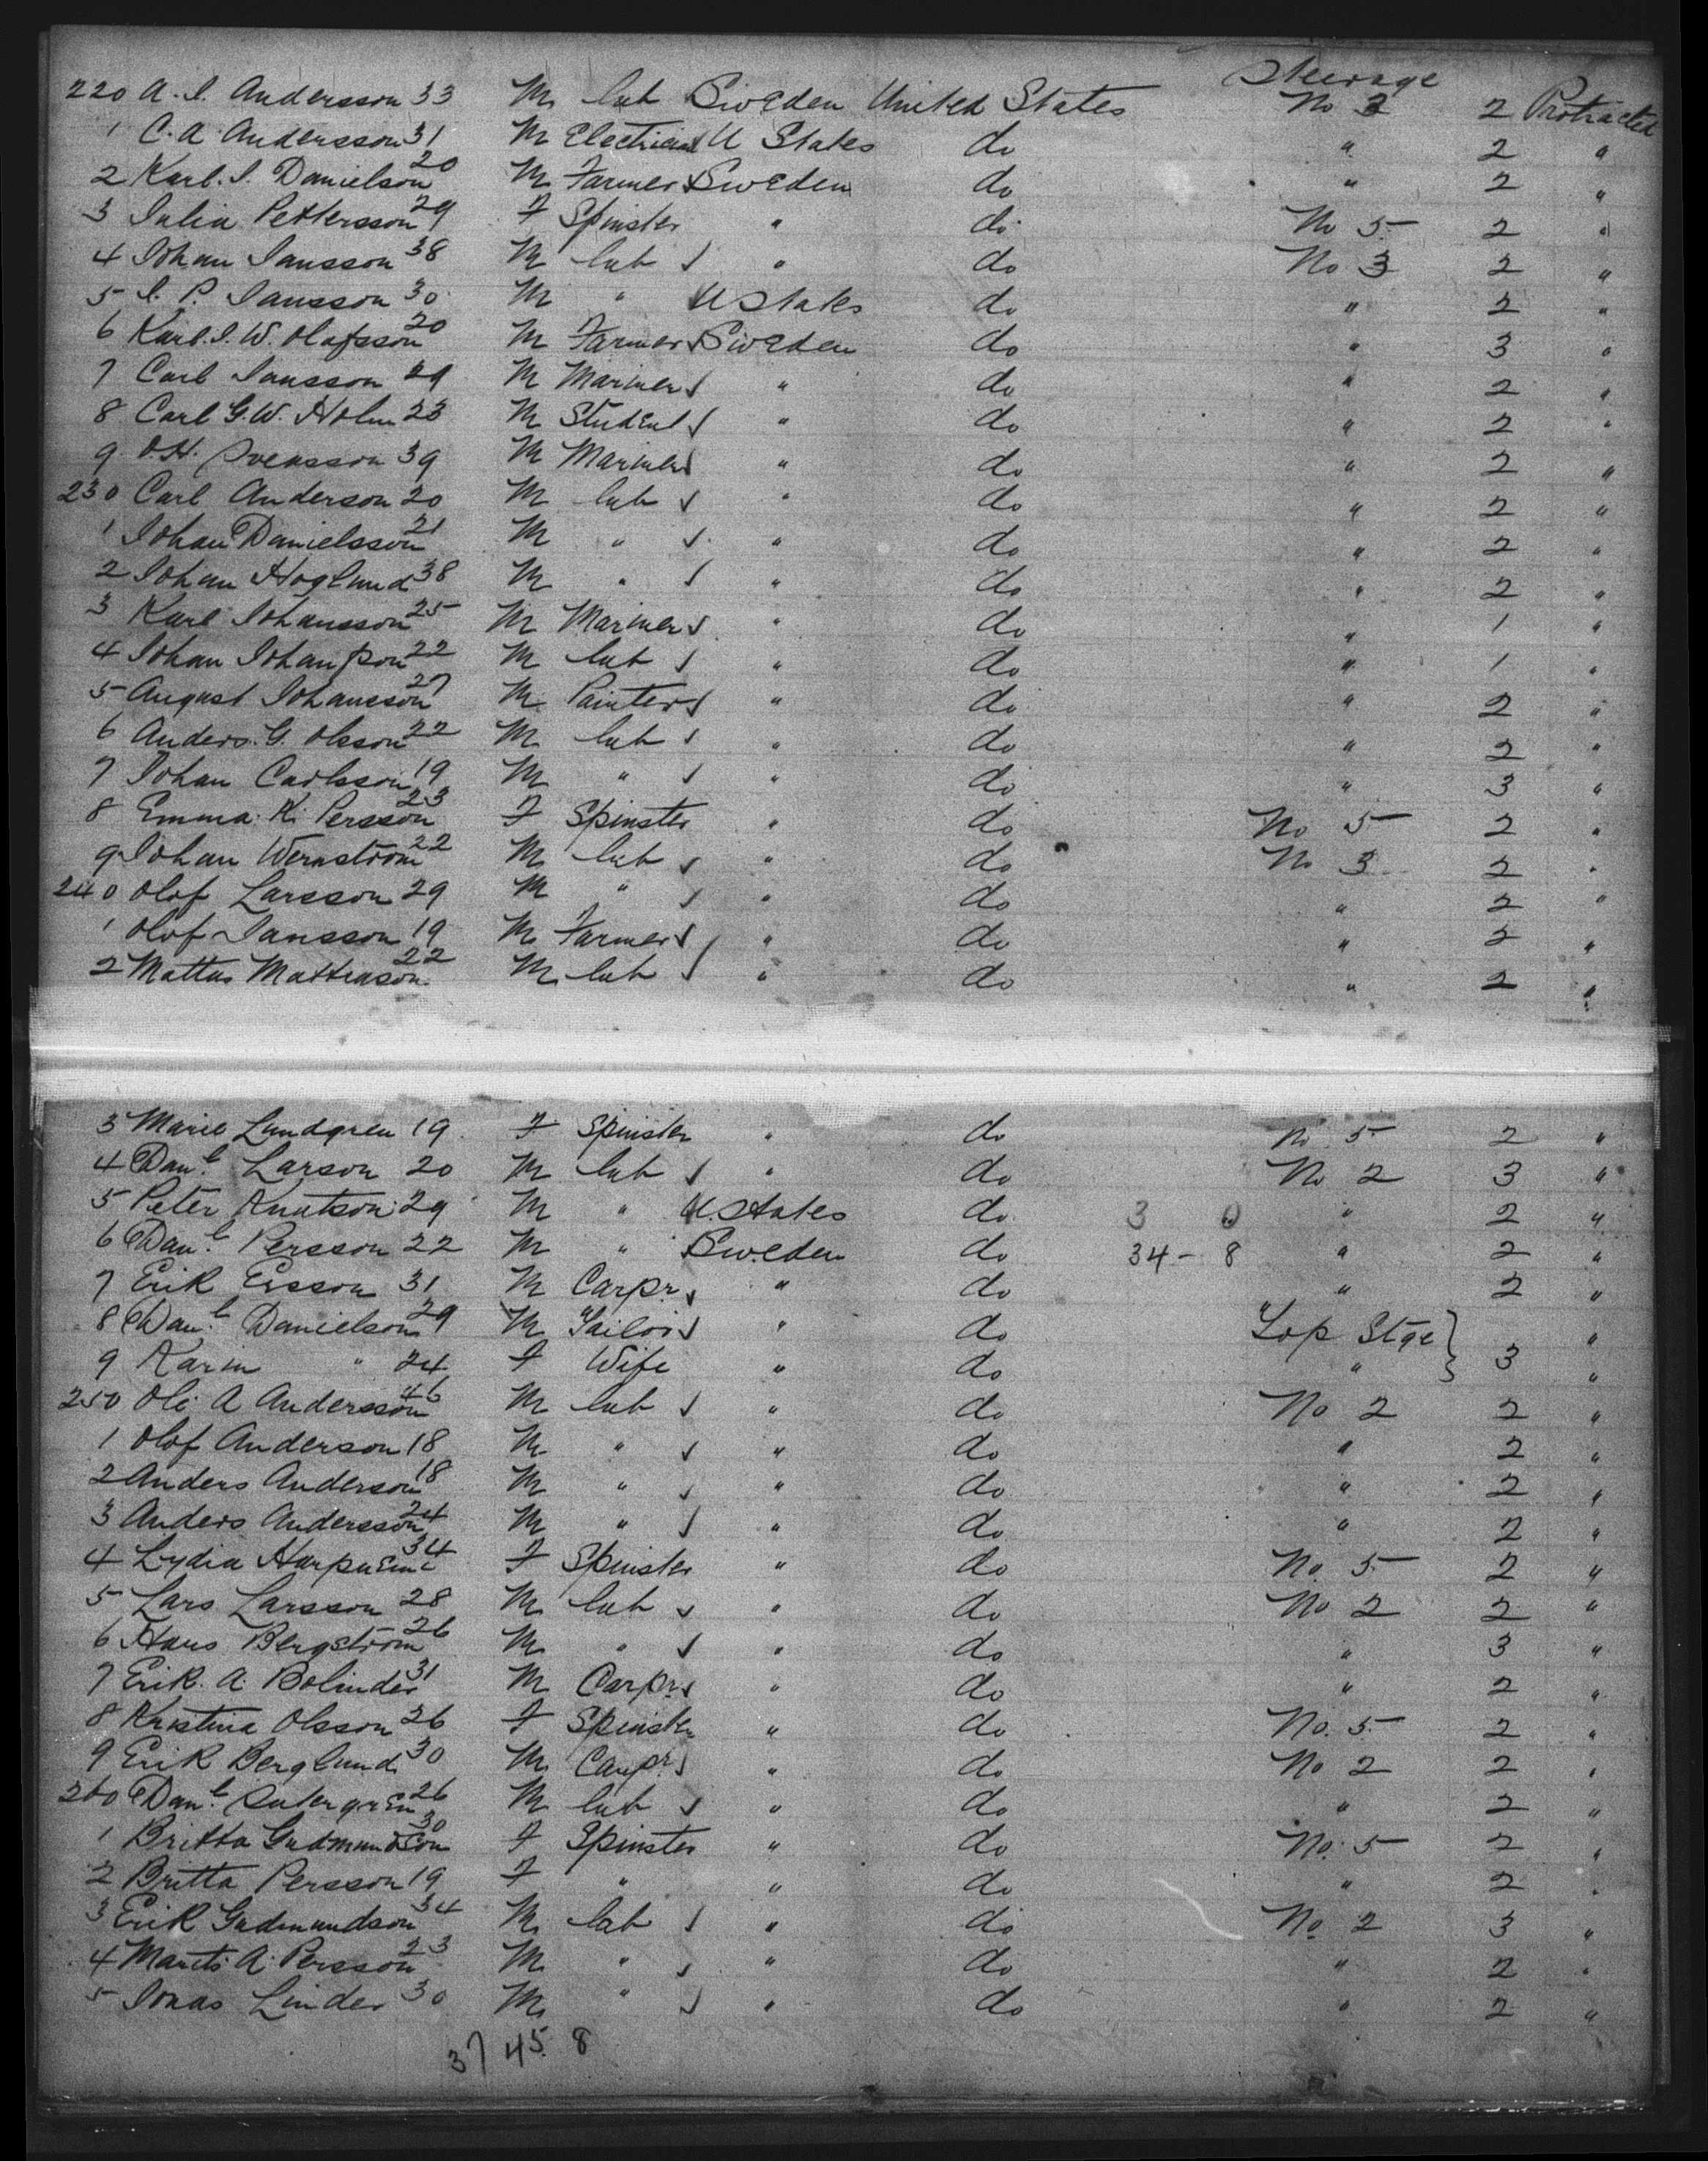 Steerage
220 A. I. Andersson 33 M lab Sweden United States No 3 2 Protracted
1 C. A. Andersson 31 M Electrician U States do " 2 "
2 Karl. I. Danielson 20 M Farmer Sweden do " 2 "
3 Julia Pettersson 29 F Spinster " do No 5 2 "
4 Johan Jansson 38 M lab " do No 3 2 "
5 I. P. Jansson 30 M " U States do " 2 "
6 Karl. I. W. Olafsson 20 M Farmer Sweden do " 3 "
7 Carl Jansson 29 M Mariner " do " 2 "
8 Carl G. W. Holm 23 M Student " do " 2 "
9 O. H. Svensson 39 M Mariner " do " 2 "
230 Carl Anderson 20 M lab " do " 2 "
1 Johan Danielsson 21 M " " do " 2 "
2 Johan Hoglund 38 M " " do " 2 "
3 Karl Johansson 25 M Mariner " do " 1 "
4 Johan Johansson 22 M lab " do " 1 "
5 August Johansson 27 M Painter " do " 2 "
6 Anders. G. Olsson 22 M lab " do " 2 "
7 Johan Carlsson 19 M " " do " 3 "
8 Emma. K. Persson 23 F Spinster " do No 5 2 "
9 Johan Wernstrom 22 M lab " do No 3 2 "
240 Olof Larsson 29 M " " do " 2 "
1 Olof Jansson 19 M Farmer " do " 2 "
2 Mattus Mattenson 22 M lab " do " 2 "
3 Marie Lundgren 19 F Spinster " do No 5 2 "
4 Danl Larson 20 M lab " do No 2 3 "
5 Peter Knutson 29 M " U. States do 3 0 " 2 "
6 Danl Persson 22 M " Sweden do 34 - 8 " 2 "
7 Erik Ersson 31 M Carpr " do " 2 "
8 Danl Danielson 29 M Tailor " do Top Stge "
9 Karin " 24 F Wife " do " 3 "
250 Ole A Andersson 46 M lab " do No 2 2 "
1 Olof Anderson 18 M " " do " 2 "
2 Anders Anderson 18 M " " do " 2 "
3 Anders Andersson 24 M " " do " 2 "
4 Lydia 34 F Spinster " do No. 5 2 "
5 Lars Larsson 28 M lab " do No 2 2 "
6 Hans Bergstrom 26 M " " do " 3 "
7 Erik. A. Bolinder 31 M Carpr " do " 2 "
8 Kristina Olsson 26 F Spinster " do No. 5 2 "
9 Erik Berglund 30 M Carpr " do No 2 2 "
260 Danl 26 M lab " do " 2 "
1 Britta Gudmundson 30 F Spinster " do No. 5 2 "
2 Britta Persson 19 F " " do " 2 "
3 Erik Gudmundson 34 M lab " do No. 2 3 "
4 A. Persson 23 M " " do " 2 "
5 Jonas Linder 30 M " " do " 2 "
37 45 8